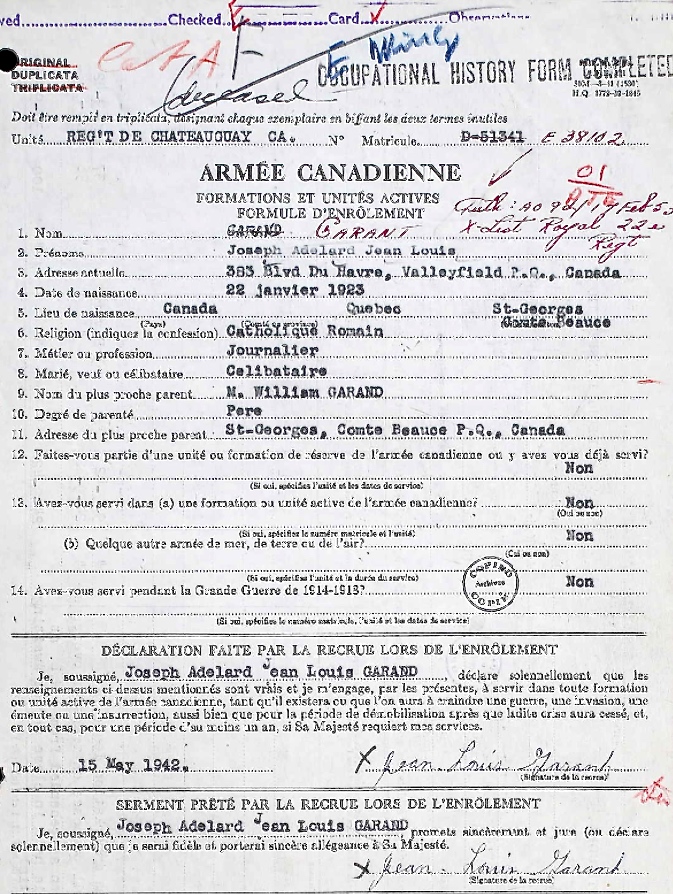 Checked Card Observations
ORIGINAL
DUPLICATA
TRIPLICATA
F
(deceased
OCCUPATIONAL HISTORY FORM COMPLETED
Doit être rempli en triplicata, désignant chaque exemplaire en biffant les deux termes inutiles
Unité REG'T DE CHATEAUGUAY CA. N° Matricule D-51341 E 38102
ARMÉE CANADIENNE
01
FORMATIONS ET UNITÉS ACTIVES
FORMULE D'ENRÔLEMENT
X-List Royal 22e Regt
1. Nom GARAND GARANT
2. Prénoms Joseph Adelard Jean Louis
3. Adresse actuelle 383 Blvd Du Havre, Valleyfield P.Q., Canada
4. Date de naissance 22 janvier 1923
5. Lieu de naissance Canada Quebec St-Georges
(Pays) Comte Beauce
6. Religion (indiquez la confession) Catholique Romain
7. Métier ou profession Journalier
8. Marié, veuf ou célibataire Celibataire
9. Nom du plus proche parent M. William GARAND
10. Degré de parenté Pere
11. Adresse du plus proche parent St-Georges, Comte Beauce P.Q., Canada
12. Faites-vous partie d'une unité ou formation de réserve de l'armée canadienne ou y avez vous déjà servi?
Non
(Si oui, spécifiez l'unité et les dates de service)
13. Avez-vous servi dans (a) une formation ou unité active de l'armée canadienne? Non
(Oui ou non)
(Si oui, spécifiez le numéro matricule et l'unité)
(b) Quelque autre armée de mer, de terre ou de l'air? Non
(Oui ou non)
(Si oui, spécifiez l'unité et la durée du service)
14. Avez-vous servi pendant la Grande Guerre de 1914-1918? Non
COPIND
Archives
COPIE
(Si oui, spécifiez le numéro matricule, l'unité et les dates de service)
DÉCLARATION FAITE PAR LA RECRUE LORS DE L'ENRÔLEMENT
Je, soussigné, Joseph Adelard Jean Louis GARAND, déclare solennellement que les
renseignements ci-dessus mentionnés sont vrais et je m'engage, par les présentes, à servir dans toute formation
ou unité active de l'armée canadienne, tant qu'il existera ou que l'on aura à craindre une guerre, une invasion, une
émeute ou une insurrection, aussi bien que pour la période de démobilisation après que ladite crise aura cessé, et,
en tout cas, pour une période d'au moins un an, si Sa Majesté requiert mes services.
Date 15 May 1942. X Jean Louis Garand
(Signature de la recrue)
SERMENT PRÊTÉ PAR LA RECRUE LORS DE L'ENRÔLEMENT
Je, soussigné, Joseph Adelard Jean Louis GARAND, promets sincèrement et jure (ou déclare
solennellement) que je serai fidèle et porterai sincère allégeance à Sa Majesté.
X Jean Louis Garand
(Signature de la recrue)